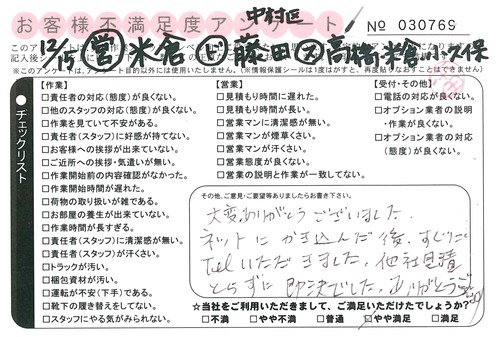 お客様不満足度アンケート
中村区
No 030769
12/15 営 米倉 リ 藤田 又 高橋 米倉 小久保
チェックリスト
【作業】
□責任者の対応(態度)が良くない。
□他のスタッフの対応(態度)が良くない。
□作業を見ていて不安がある。
□責任者(スタッフ)に好感が持てない。
□お客様への挨拶が出来ていない。
□ご近所への挨拶・気遣いが無い。
□作業開始前の内容確認がなかった。
□作業開始時間が遅れた。
□荷物の取り扱いが雑である。
□お部屋の養生が出来ていない。
□作業時間が長すぎる。
□責任者(スタッフ)に清潔感が無い。
□責任者(スタッフ)が汗くさい。
□トラックが汚い。
□梱包資材が汚い。
□運転が不安(下手)である。
□靴下の履き替えをしてない。
□スタッフにやる気がみられない。
【営業】
□見積もり時間に遅れた。
□見積もり時間が長い。
□営業マンに清潔感が無い。
□営業マンが煙草くさい。
□営業マンが汗くさい。
□営業態度が良くない。
□営業の説明と作業が一致してない。
【受付・その他】
□電話の対応が良くない。
□オプション業者の説明
・作業が良くない。
□オプション業者の対応
(態度)が良くない。
その他、ご意見・ご要望等ありましたらお書き下さい。
大変ありがとうございました。
ネットにかき込んだ後、すぐに
Telいただきました。他社見積
とらずに即決でした。ありがとう
☆当社をご利用いただきまして、ご満足いただけたでしょうか?
□不満 □やや不満 □普通 □やや満足 □満足